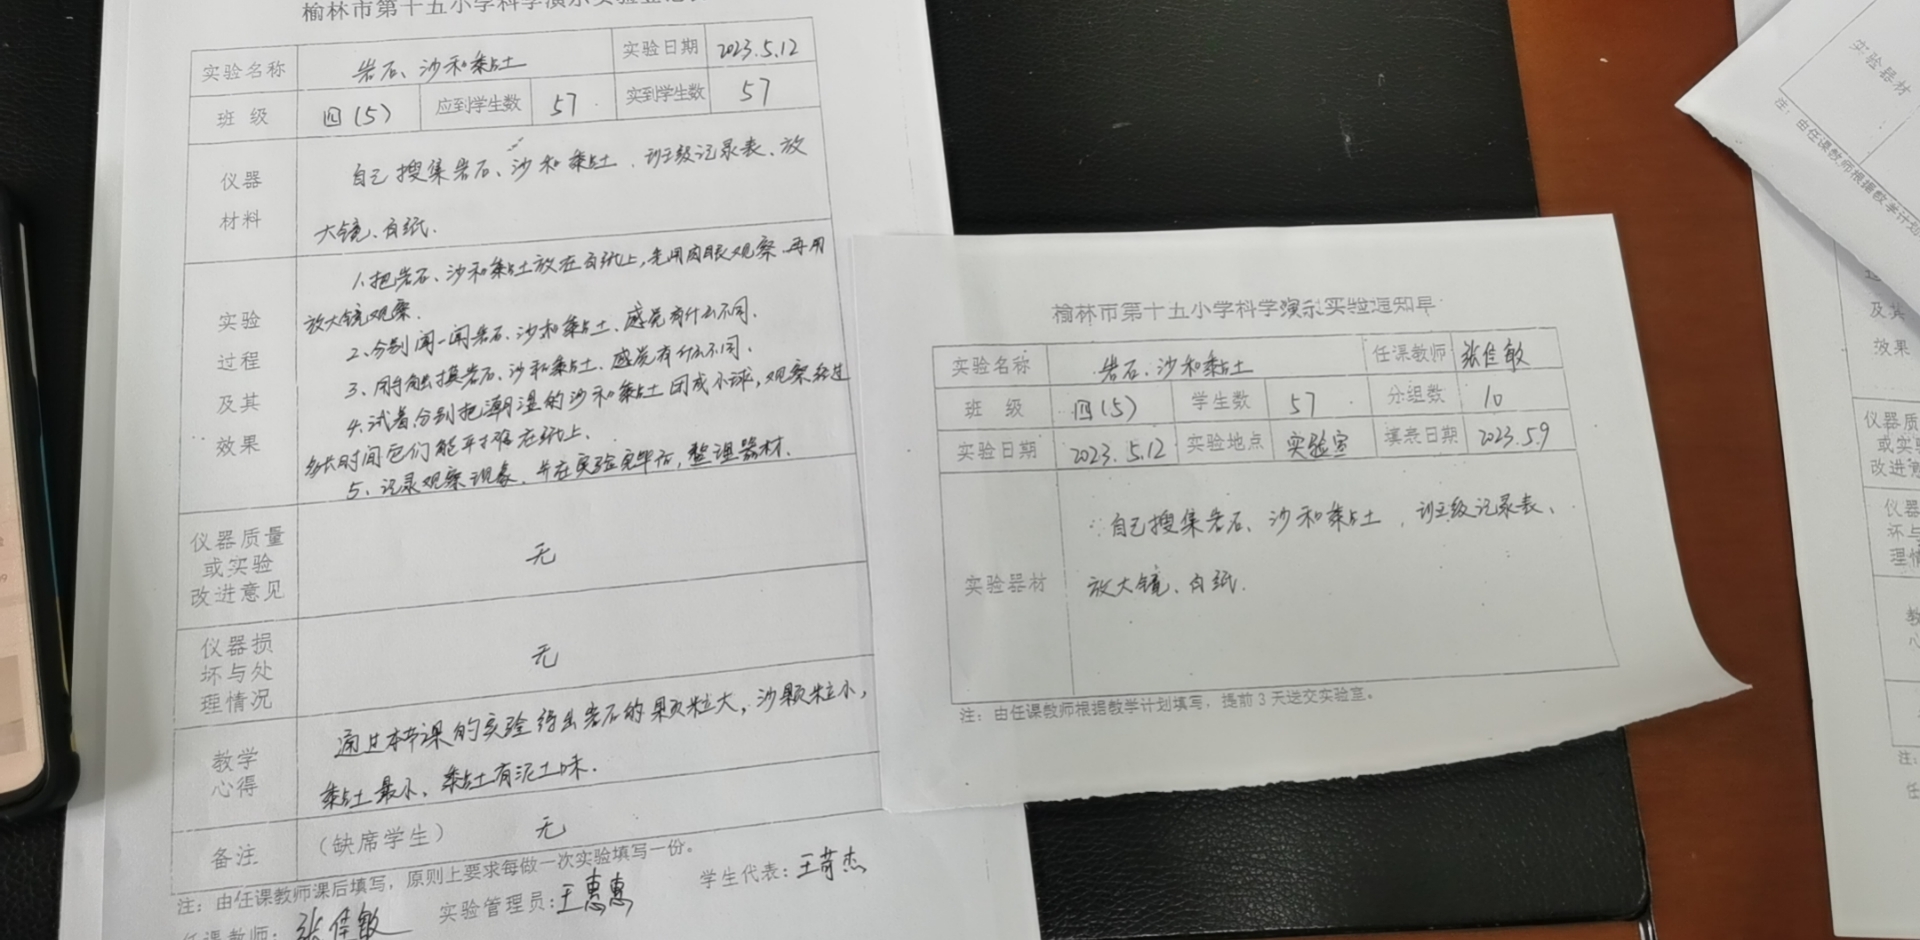 榆林市第十五小学科学演示实验登记表
实验名称 岩石、沙和黏土 实验日期 2023.5.12
班 级 四(5) 应到学生数 57 实到学生数 57
仪器材料
自己搜集岩石、沙和黏土、班级记录表、放
大镜、白纸.
实验过程及其效果
1、把岩石、沙和黏土放在白纸上,先用肉眼观察、再用
放大镜观察.
2、分别闻一闻岩石、沙和黏土、感觉有什么不同.
3、用手触摸岩石、沙和黏土、感觉有什么不同、
4、试着分别把潮湿的沙和黏土团成小球,观察经过
多长时间它们能平摊在纸上.
5、记录观察现象、并在实验完毕后,整理器材.
仪器质量
或实验
改进意见
无
仪器损
坏与处
理情况
无
教学
心得
通过本节课的实验得出岩石的颗粒大,沙颗粒小,
黏土最小、黏土有泥土味.
备注 (缺席学生) 无
注:由任课教师课后填写,原则上要求每做一次实验填写一份。
任课教师: 张佳敏 实验管理员:王惠惠 学生代表:王苛杰
榆林市第十五小学科学演示实验通知单
实验名称 岩石、沙和黏土 任课教师 张佳敏
班 级 四(5) 学生数 57 分组数 10
实验日期 2023.5.12 实验地点 实验室 填表日期 2023.5.9
实验器材
自己搜集岩石、沙和黏土、班级记录表、
放大镜、白纸.
注:由任课教师根据教学计划填写,提前3天送交实验室。
实验器材
注:由任课教师根据教学计划
及其
效果
仪器质
或实验
改进意
仪器
坏与
理情